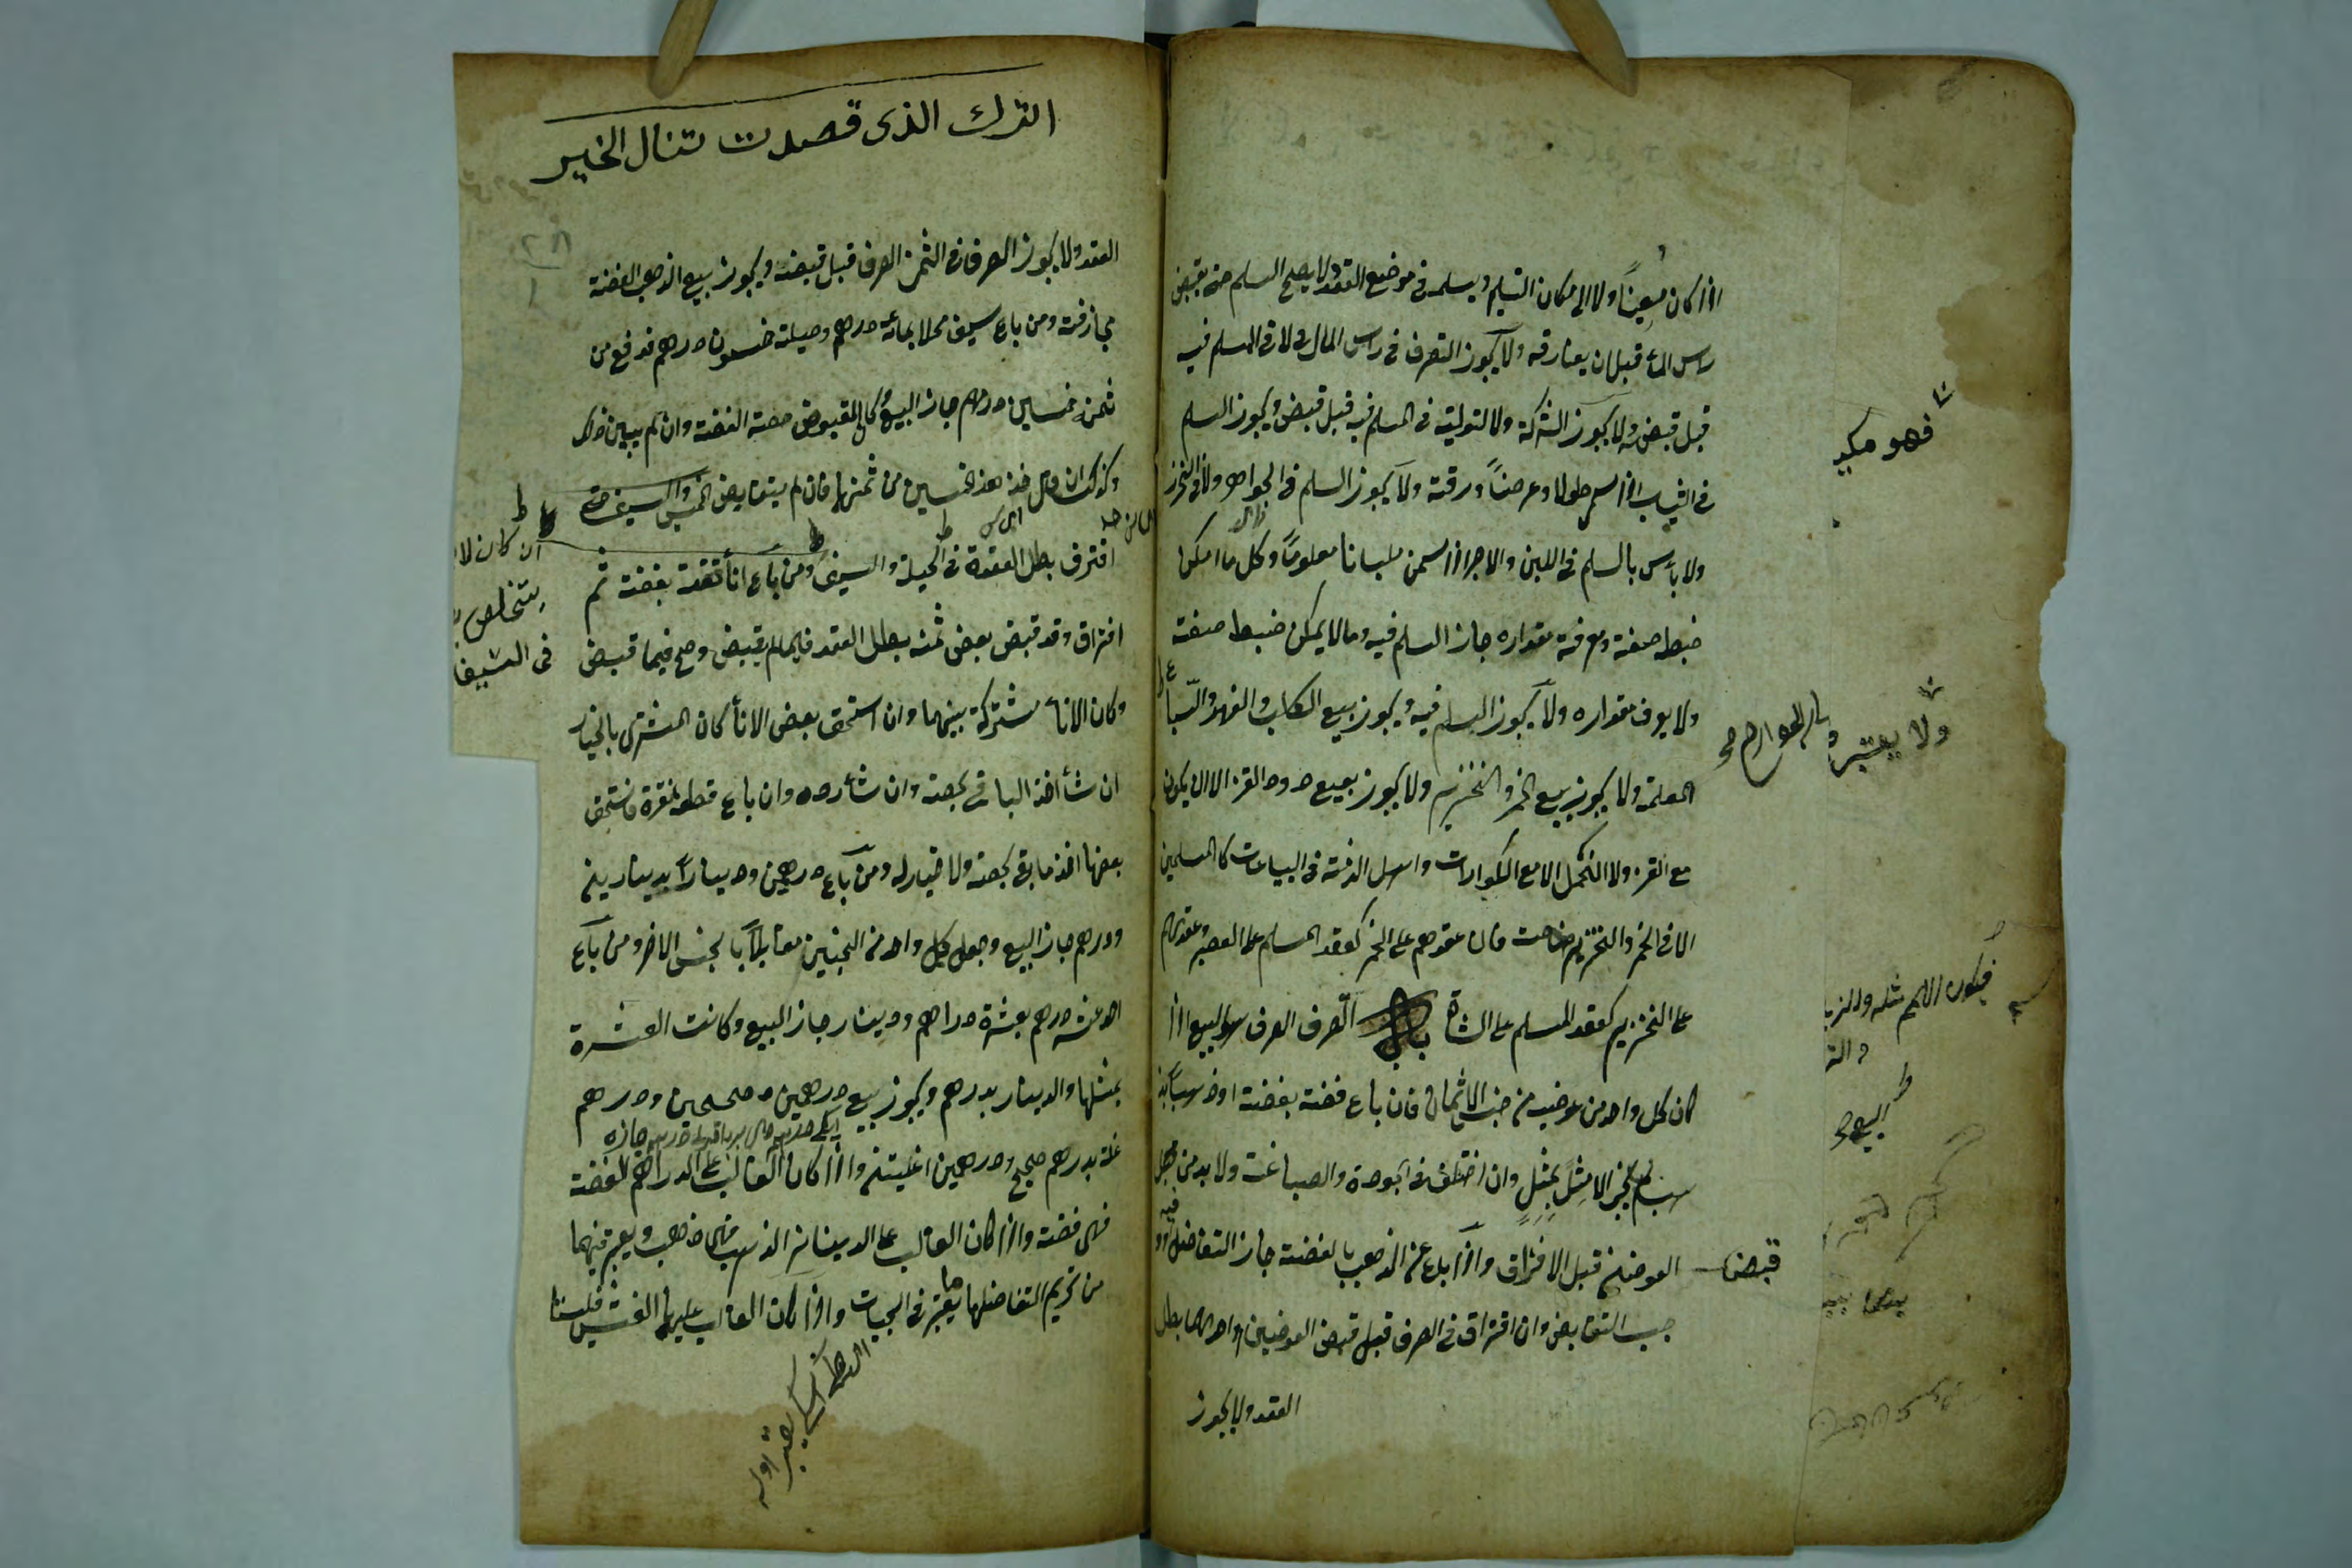 اذا كان معيناً ولا الى مكان التسليم ويسلمه في موضع العقد ولا يصح السلم حتى يقبض
راس المال قبل ان يفارقه ولا يجوز التصرف في راس المال ولا في المسلم فيه
قبل قبضه ولا يجوز الشركة ولا التولية في المسلم فيه قبل قبضه ويجوز السلم
في الثياب اذا سمى طولا وعرضاً ورقته ولا يجوز السلم في الجواهر ولا في الخرز
ولا بأس بالسلم في اللبن والاجر اذا سمى ملبانا معلوماً وكل ما امكن
ضبط صفته ومعرفة مقداره جاز السلم فيه وما لا يمكن ضبط صفته
ولا يعرف مقداره ولا يجوز السلم فيه ويجوز بيع الكلب والفهد والسباع
المعلمة ولا يجوز بيع الخمر والخنزير ولا يجوز بيع دود القز الا ان يكون
مع القز ولا النحل الا مع الكوارات واهل الذمة في البياعات كالمسلمين
الا في الخمر والخنزير خاصت فان عقدهم على الخمر كعقد المسلم على العصير وعقدهم
على الخنزير كعقد المسلم على الشاة باب الصرف الصرف هو البيع اذا
كان كل واحد من عوضيه من جنس الاثمان فان باع فضة بفضة او ذهباً بذهب
لم يجز الا مثل بمثل وان اختلف في الجودة والصياغت ولا بد من قبل
قبض العوضين قبل الافتراق واذا باع الذهب بالفضة جاز التفاضل فيه وو
جب التقابض وان افتراق في الصرف قبل قبض العوضين او احدهما بطل
العقد ولا يجوز
فهو مكيل
ولا يعتبر
قبض
الترك الذى قصدت تنال الخير
العقد ولا يجوز الصرف في الثمن الصرف قبل قبضه ويجوز بيع الذهب الفضة
مجازفة ومن باع سيف محلا بمائة درهم وحيلته خمسون درهم فدفع من
ثمنه خمسين درهم جاز البيع وكان المقبوض حصة الفضة وان لم يبين ذلك
وكذلك ان قال خذ هذه الخمسين من ثمنها فان لم يتقابض الخمسين السيف حتى
افترق بطل العقدة في الحيلة والسيف ومن باع انأ فضة بفضة ثم
افتراق وقد قبض بعض ثمنه بطل العقد فيما لم يقبض وصح فيما قبض
وكان الانأ مشتركة بينهما وان استحق بعض الانأ كان المشترى بالخيار
ان شأ اخذ الباقي بحصته وان شأ رده وان باع قطعة نقرة فاستحق
بعضها اخذ ما بقي بحصته ولا خيار له ومن باع درهمين ودينارا بدينارين
ودرهم جاز البيع وجعل كل واحد من الجنسين مقابلاً بالجنس الاخر ومن باع
احد عشر درهم بعشرة دراهم ودينار جاز البيع وكانت العشرة
بمثلها والدينار بدرهم ويجوز بيع درهمين صحيحين ودرهم
غلة بدرهم صحيح ودرهمين اغليتين واذا كان الغالب على الدراهم الفضة
فهي فضة واذا كان الغالب على الدينانير الذهب فهي ذهب ويعتبر فيهما
من تحريم التفاضلها ما يعتبر في الجيات واذا كان الغالب عليها الغش فليستا
ان كان لا
يتخلص
في السيف